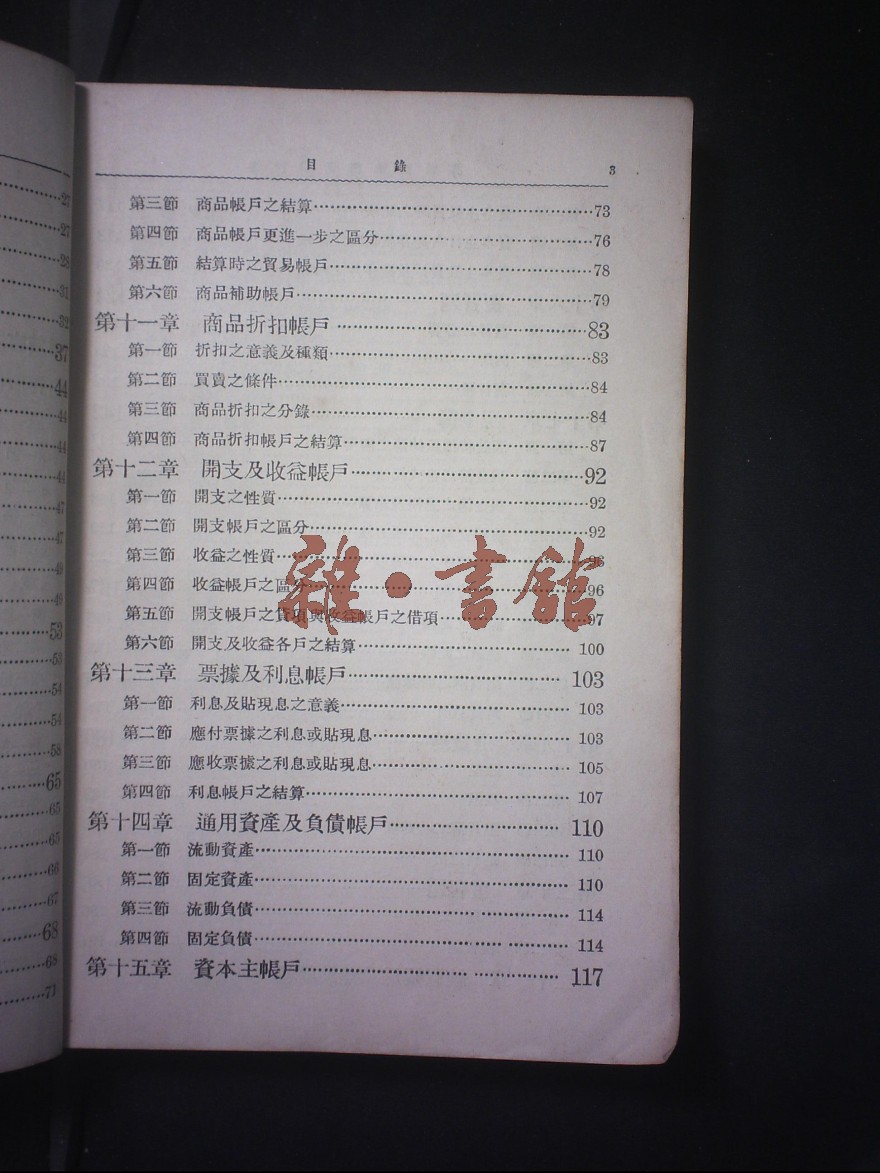 27
27
28
31
32
37
44
44
44
44
47
47
49
49
53
53
54
54
58
65
65
65
66
67
68
68
71
目 錄 3
第三節 商品帳戶之結算 73
第四節 商品帳戶更進一步之區分 76
第五節 結算時之貿易帳戶 78
第六節 商品補助帳戶 79
第十一章 商品折扣帳戶 83
第一節 折扣之意義及種類 83
第二節 買賣之條件 84
第三節 商品折扣之分錄 84
第四節 商品折扣帳戶之結算 87
第十二章 開支及收益帳戶 92
第一節 開支之性質 92
第二節 開支帳戶之區分 92
第三節 收益之性質 96
第四節 收益帳戶之區分 96
第五節 開支帳戶之貸項與收益帳戶之借項 97
第六節 開支及收益各戶之結算 100
第十三章 票據及利息帳戶 103
第一節 利息及貼現息之意義 103
第二節 應付票據之利息或貼現息 103
第三節 應收票據之利息或貼現息 105
第四節 利息帳戶之結算 107
第十四章 通用資產及負債帳戶 110
第一節 流動資產 110
第二節 固定資產 110
第三節 流動負債 114
第四節 固定負債 114
第十五章 資本主帳戶 117
雜·書館